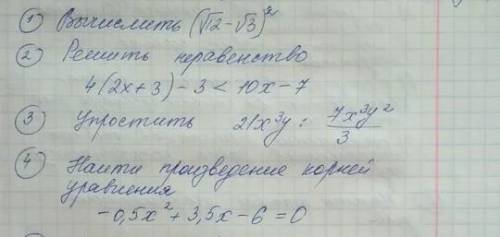 ① Вычислить (√12-√3)²
② Решить неравенство
4(2x+3)-3<10x-7
③ Упростить 21x³y : 7x³y²/3
④ Найти произведение корней
уравнения
-0,5x²+3,5x-6=0